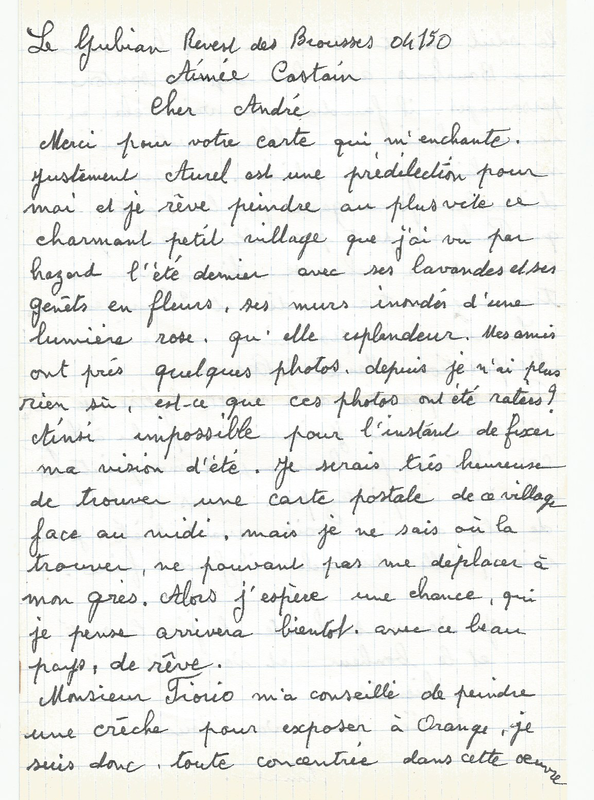 Le Gubian Revest des Brousses 04150
Aimée Castain
Cher André
Merci pour votre carte qui m'enchante.
justement Aurel est une prédilection pour
moi et je rêve peindre au plus vite ce
charmant petit village que j'ai vu par
hazard l'été dernier avec ses lavandes et ses
genêts en fleurs, ses murs inondés d'une
lumière rose. qu'elle esplendeur. Mes amis
ont prés quelques photos. depuis je n'ai plus
rien sù, est-ce que ces photos ont été ratérs?
Ainsi impossible pour l'instant de fixer
ma vision d'été. Je serais trés heureuse
de trouver une carte postale de ce village
face au midi, mais je ne sais où la
trouver, ne pouvant pas me déplacer à
mon grès. Alors j'espère une chance, qui
je pense arrivera bientot. avec ce beau
pays, de rêve.
Monsieur Fiorio m'a conseillé de peindre
une crêche pour exposer à Orange, je
suis donc, toute concentrée dans cette œuvre